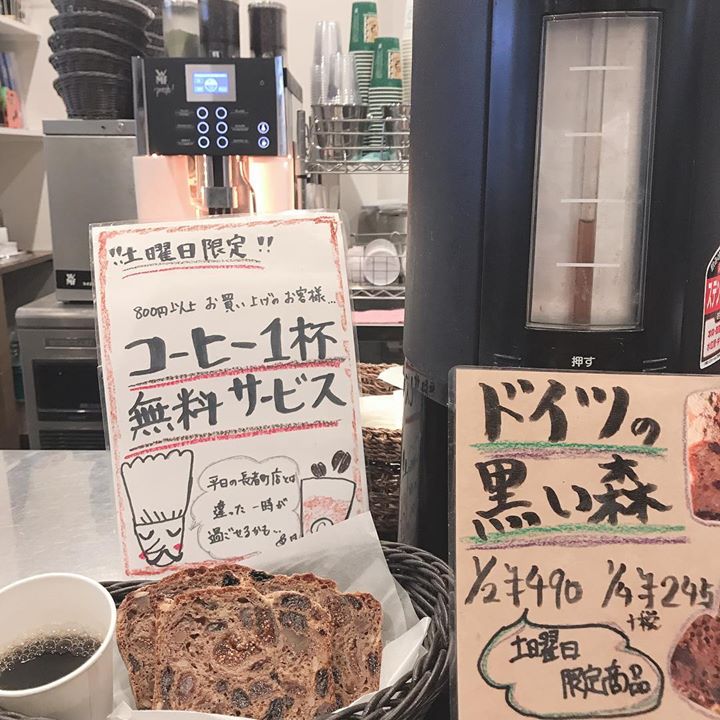 WMF
!! 土曜日限定 !!
800円以上 お買い上げのお客様...
コーヒー1杯
無料サービス
平日の長者町店とは
違った一時が
過ごせるかも...
押す
ドイツの
黒い森
1/2 ¥490 1/4 ¥245
+税
土曜日
限定商品
WMF